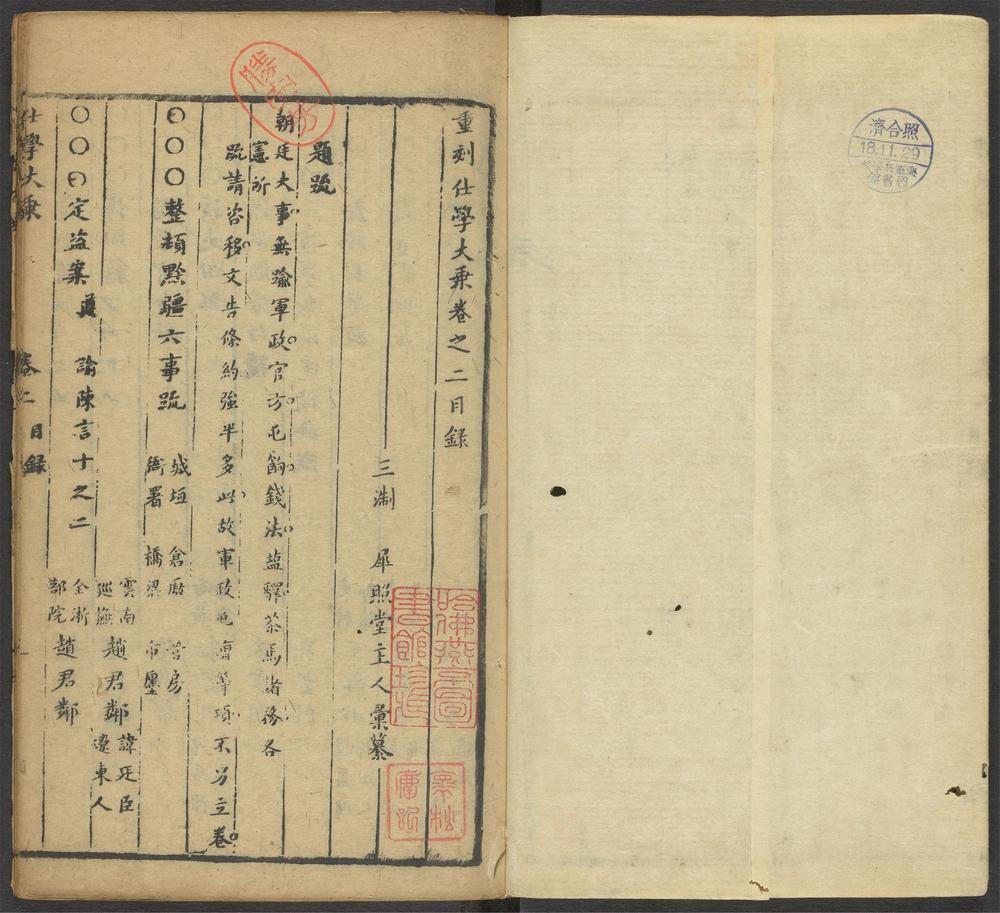 濟合照
18.11.29
重刻仕學大乘卷之二目録
三淛 犀照堂主人彙纂
哈佛燕
書館珍
題疏
朝廷大事無踰軍政官方屯餉錢法盐驛茶馬諸務各
憲所
疏請咨移文告條約強半多此故軍政屯漕等項不另立卷
○○○整頓黔疆六事疏 城垣 倉廒 营房
衙署 橋梁 市廛
雲南
巡撫 趙君鄰 諱廷臣
遼東人
○○○定盜案 遵 諭陳言十之二 全淅
部院 趙君鄰
仕學大乘 卷二 目録 一